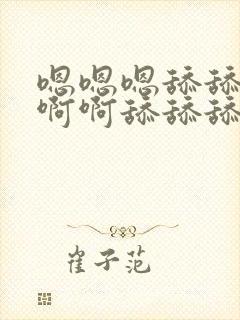 嗯嗯嗯舔舔
啊啊舔舔舔
崔子范